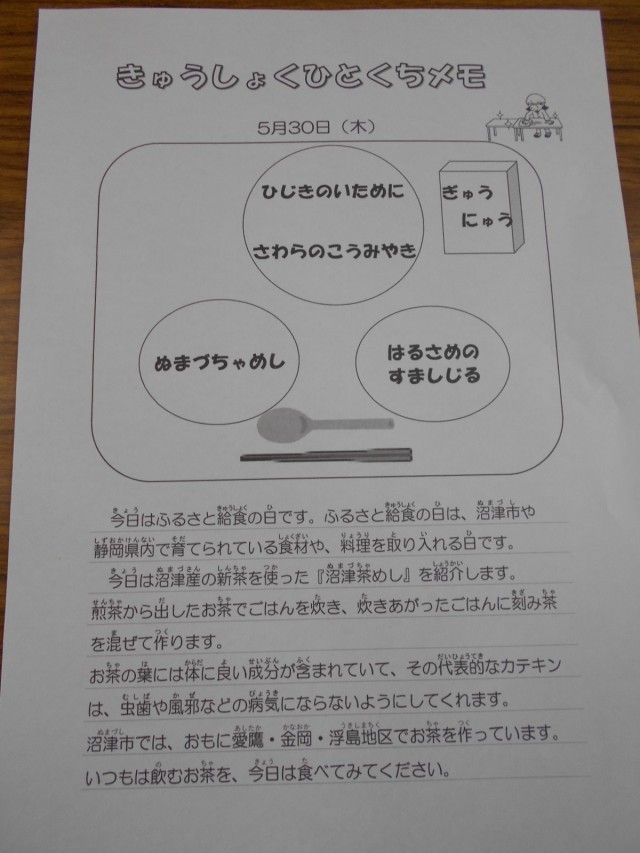 きゅうしょくひとくちメモ
5月30日（木）
ひじきのいために
さわらのこうみやき
ぎゅう
にゅう
ぬまづちゃめし
はるさめの
すましじる
今日はふるさと給食の日です。ふるさと給食の日は、沼津市や
静岡県内で育てられている食材や、料理を取り入れる日です。
今日は沼津産の新茶を使った『沼津茶めし』を紹介します。
煎茶から出したお茶でごはんを炊き、炊きあがったごはんに刻み茶
を混ぜて作ります。
お茶の葉には体に良い成分が含まれていて、その代表的なカテキン
は、虫歯や風邪などの病気にならないようにしてくれます。
沼津市では、おもに愛鷹・金岡・浮島地区でお茶を作っています。
いつもは飲むお茶を、今日は食べてみてください。